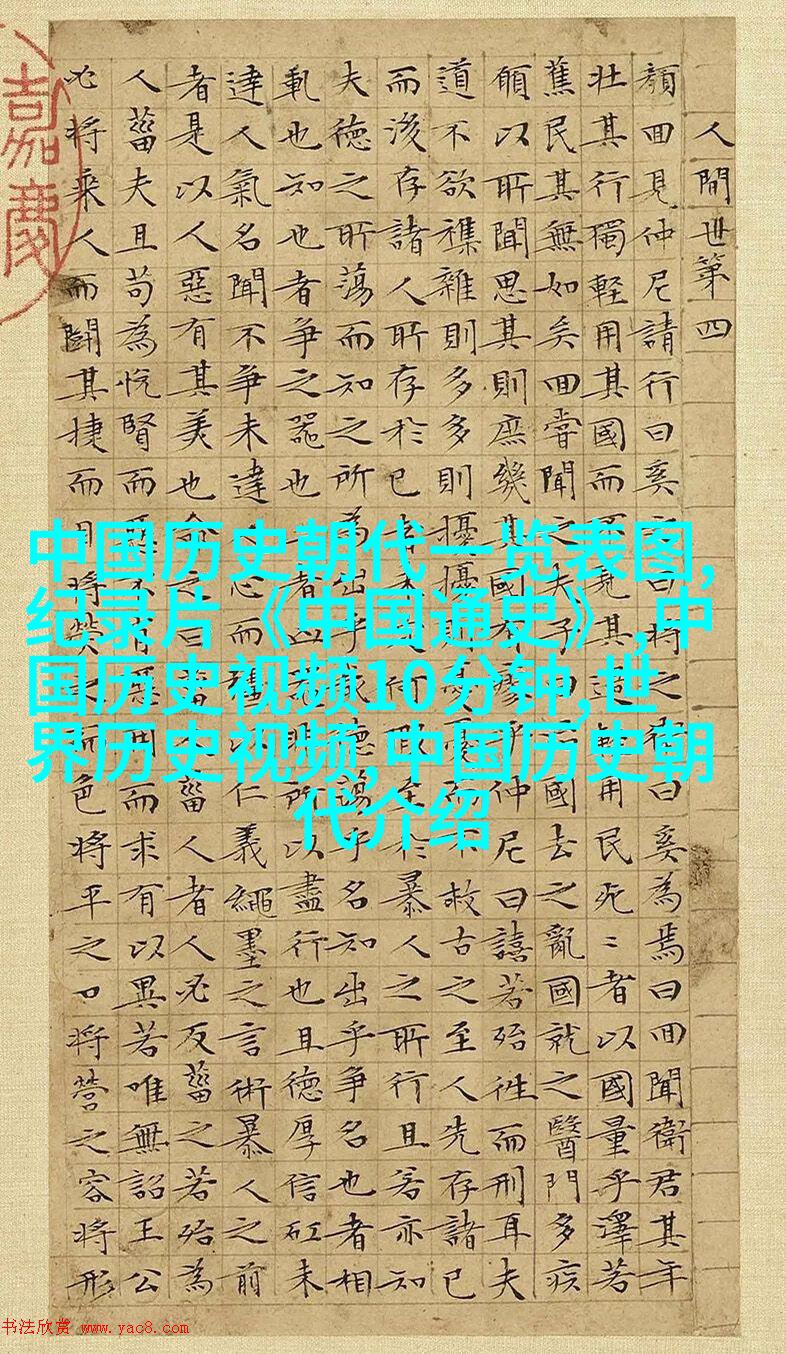 人間世第四
顏囬見仲尼請行曰奚之曰將之衛曰奚為焉曰囬聞衛君其年
壯其行獨輕用其國而見其過輕用民死〻者以國量乎澤若
蕉民其無如矣囬嘗聞之夫子曰國去之亂國就之醫門多疾
願以所聞思其則庶幾其國有瘳乎仲尼曰譆若殆往而刑耳夫
道不欲襍雜則多多則擾擾則憂憂而不救古之至人先存諸已
而後存諸人所存於已者未定何暇至於暴人之所行且若亦知
夫德之所蕩而知之所為出乎哉德蕩乎名知出乎爭名也者相
軋也知也者爭之器也者凶非所以盡行也且德厚信矼未
達人氣名聞不爭未達人心而彊以仁義繩墨之言術暴人之前
者是以人惡有其美也命之曰菑人者人必反菑之若殆為
人菑夫且苟為悅賢而惡不肖惡用而求有以異若唯無詔王公
必將乘人而鬭其捷而目將熒之而色將平之口將營之容將形
嘉慶
中国历史朝代一览表图,
纪录片《中国通史》,中
国历史视频10分钟,世
界历史视频,中国历史朝
代介绍
书法欣赏 www.yac8.com